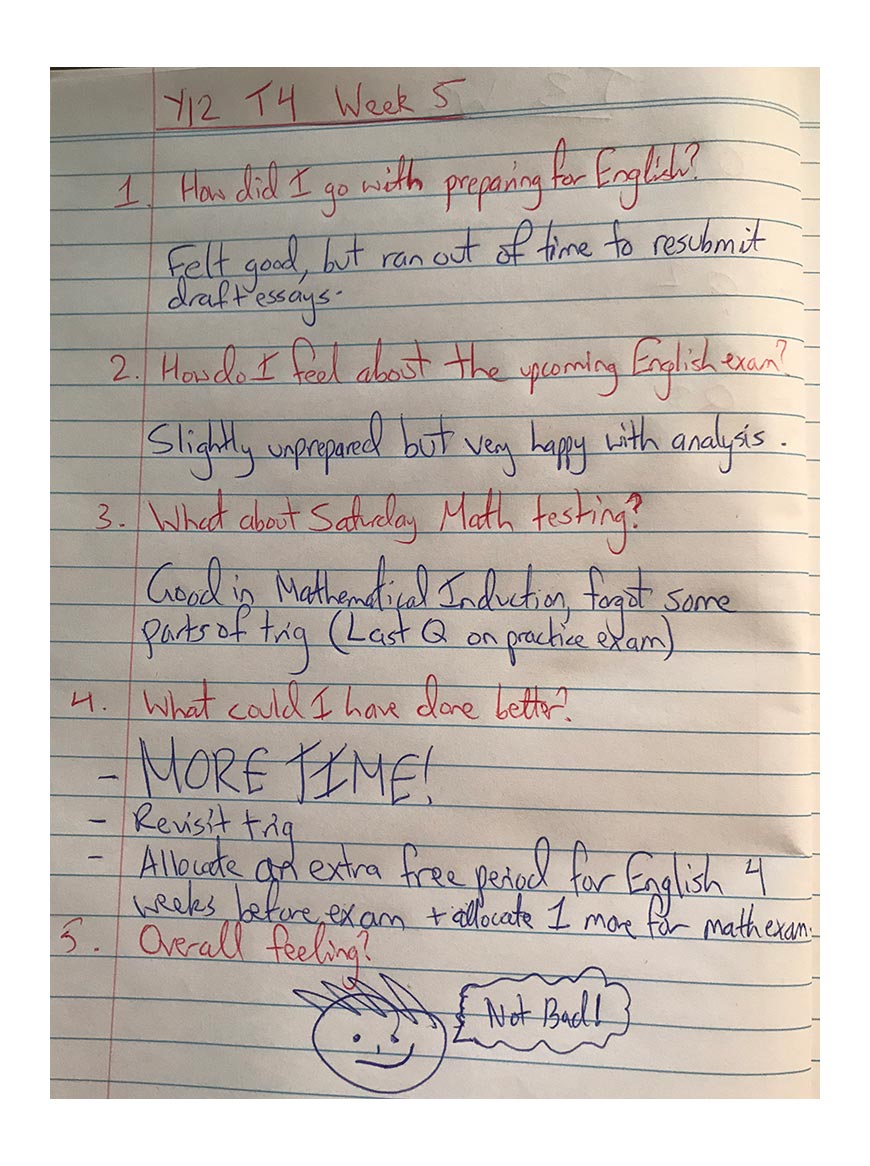 Y12 T4 Week 5
1. How did I go with preparing for English?
Felt good, but ran out of time to resubmit
draft essays.
2. How do I feel about the upcoming English exam?
Slightly unprepared but very happy with analysis.
3. What about Saturday Math testing?
Good in Mathematical Induction, forgot some
parts of trig (Last Q on practice exam)
4. What could I have done better?
- MORE TIME!
- Revisit trig
- Allocate an extra free period for English 4
weeks before exam + allocate 1 more for math exam.
5. Overall feeling?
Not Bad!